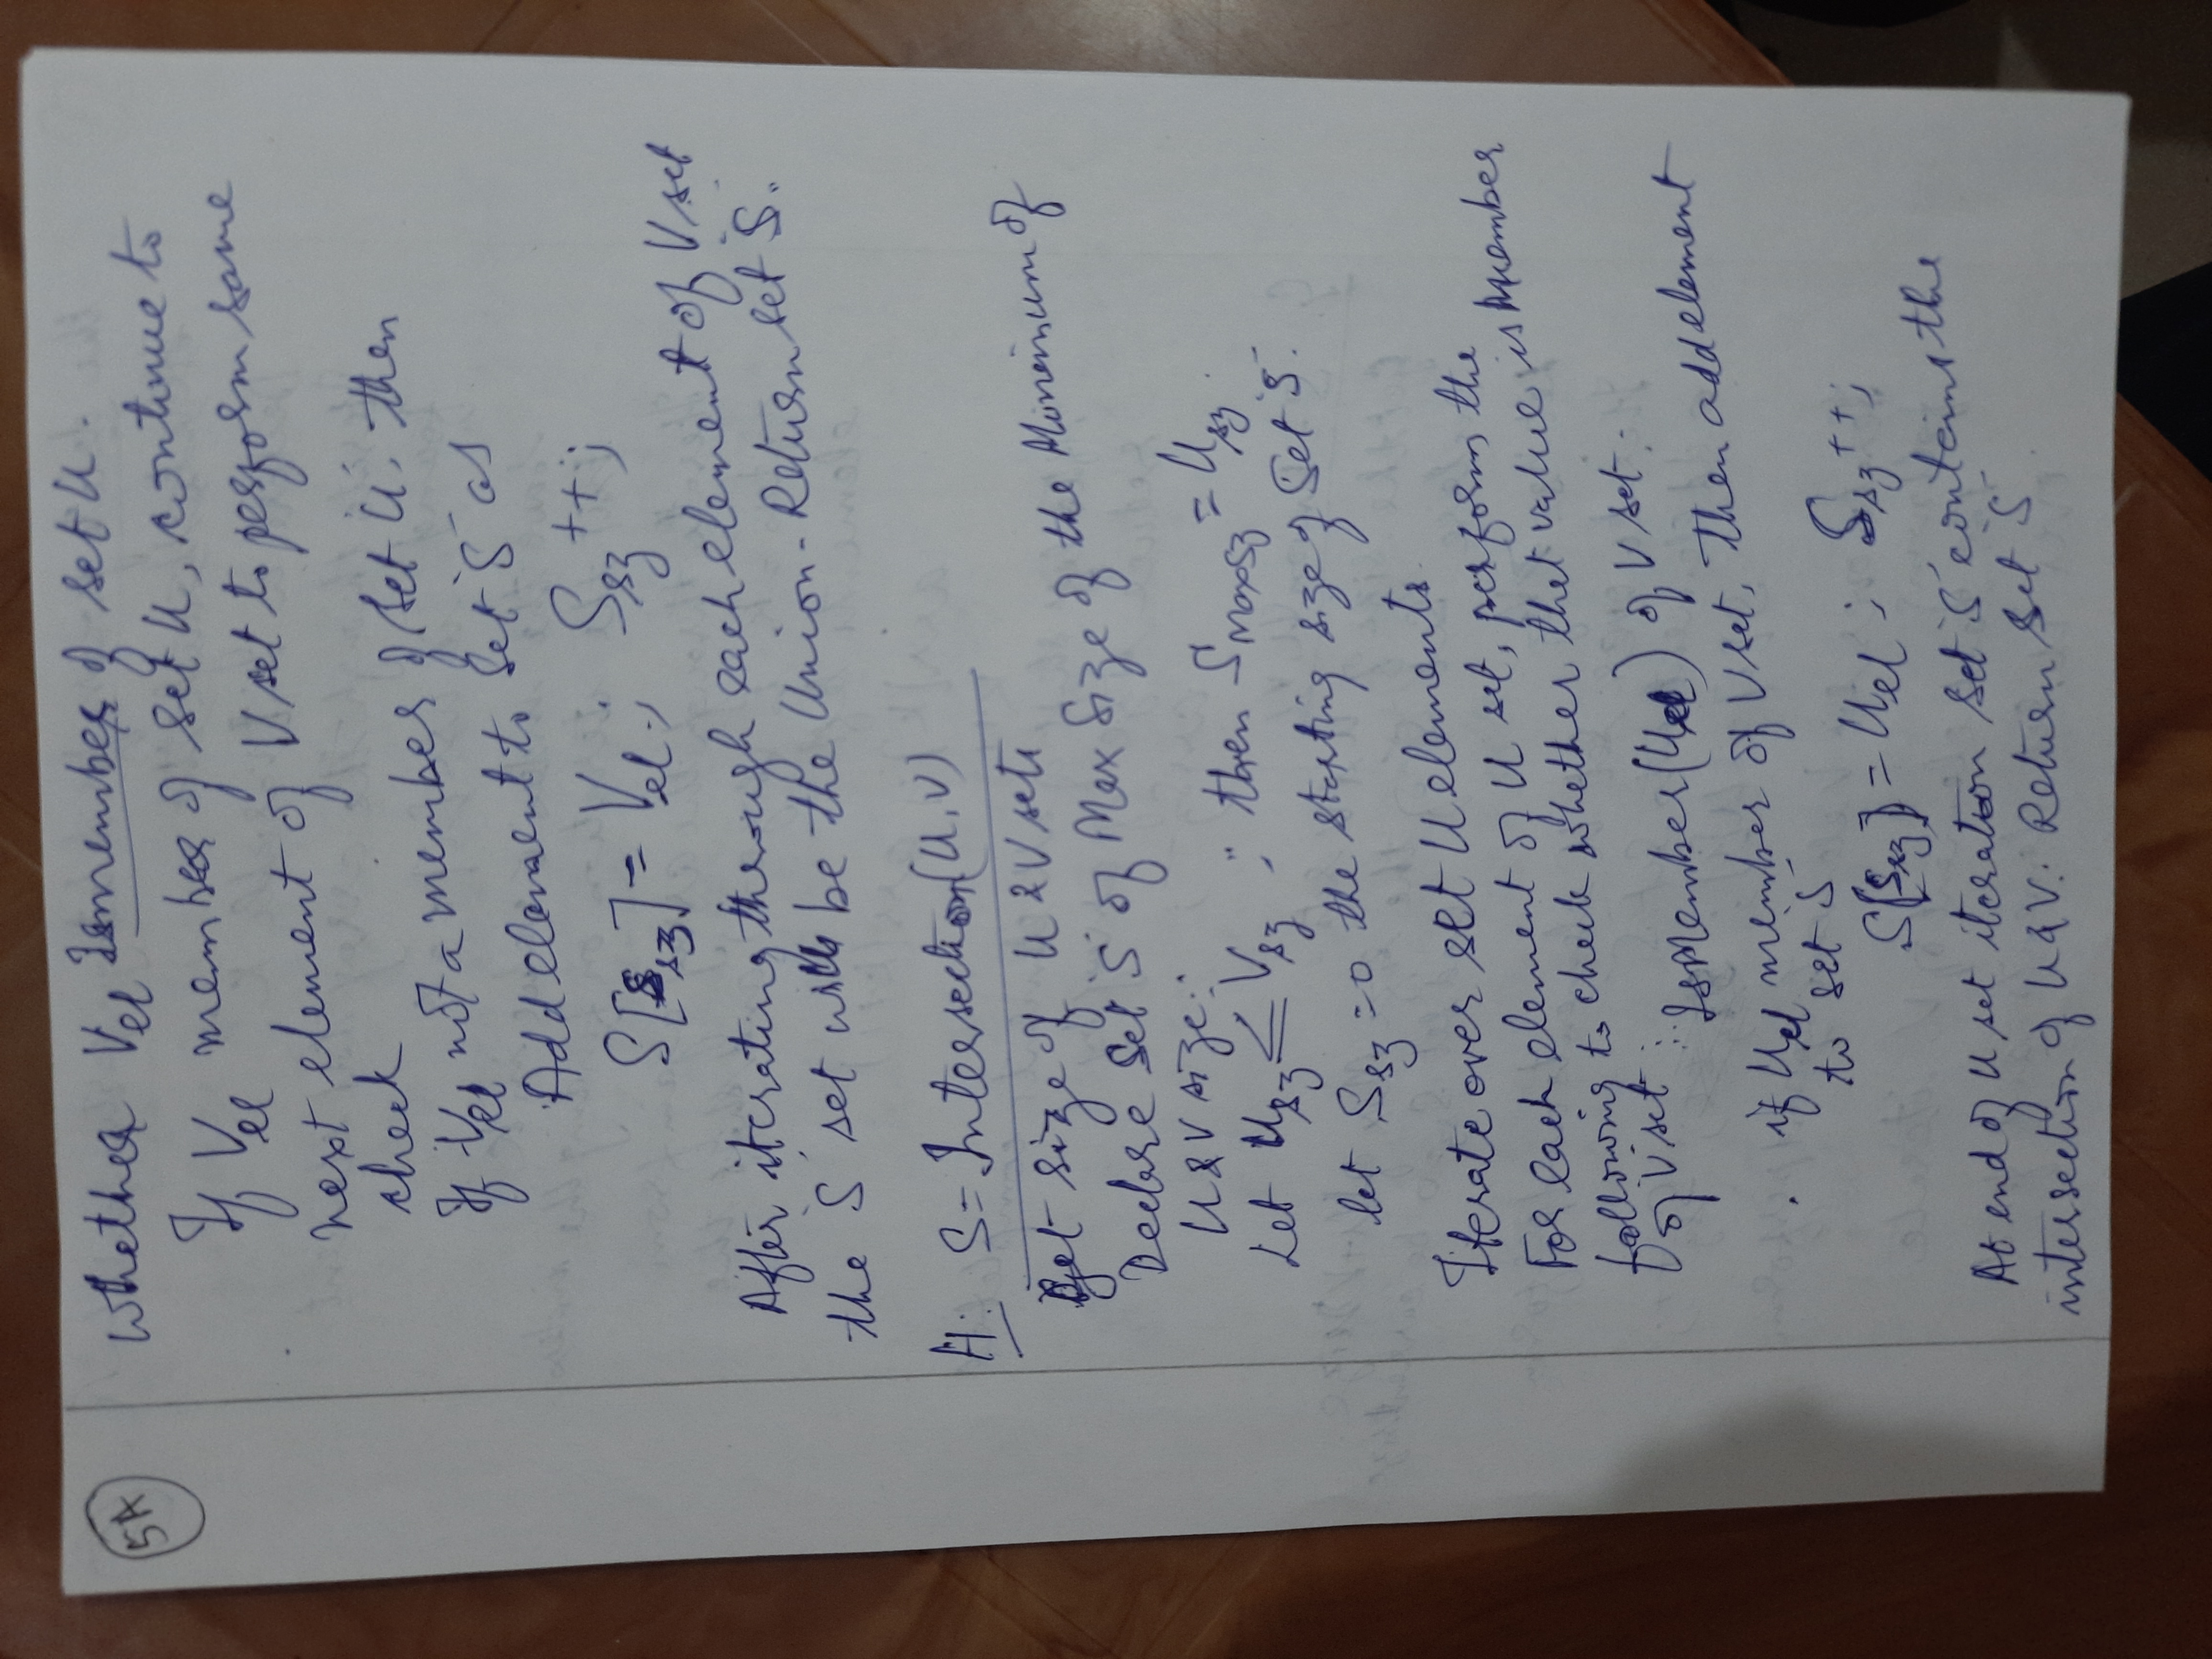 5A
Whether Vel Ismember of set U.
If Vel member of set U, continue to
next element of V set to perform same
check
If Vel not a member of set U, then
Add element to set 'S' as
S[Ssz] = Vel; Ssz++;
After iterating through each element of V set
the 'S' set will be the Union - Return set 'S'.
H: S = Intersection(U, V)
Get size of U & V sets
Declare set 'S' of Max Size of the Minimum of
U & V size:
Let Usz ≤ Vsz ; then SMaxsz = Usz
let Ssz = 0 the starting size of Set 'S'.
Iterate over set U elements
For each element of U set, perform the
following to check whether that value is Member
of 'V' set :
IsMember(Uel) of V set.
if Uel member of V set, then add element
to set 'S'
S[Ssz] = Uel ; Ssz++;
At end of U set iteration set 'S' contains the
intersection of U & V. Return set 'S'